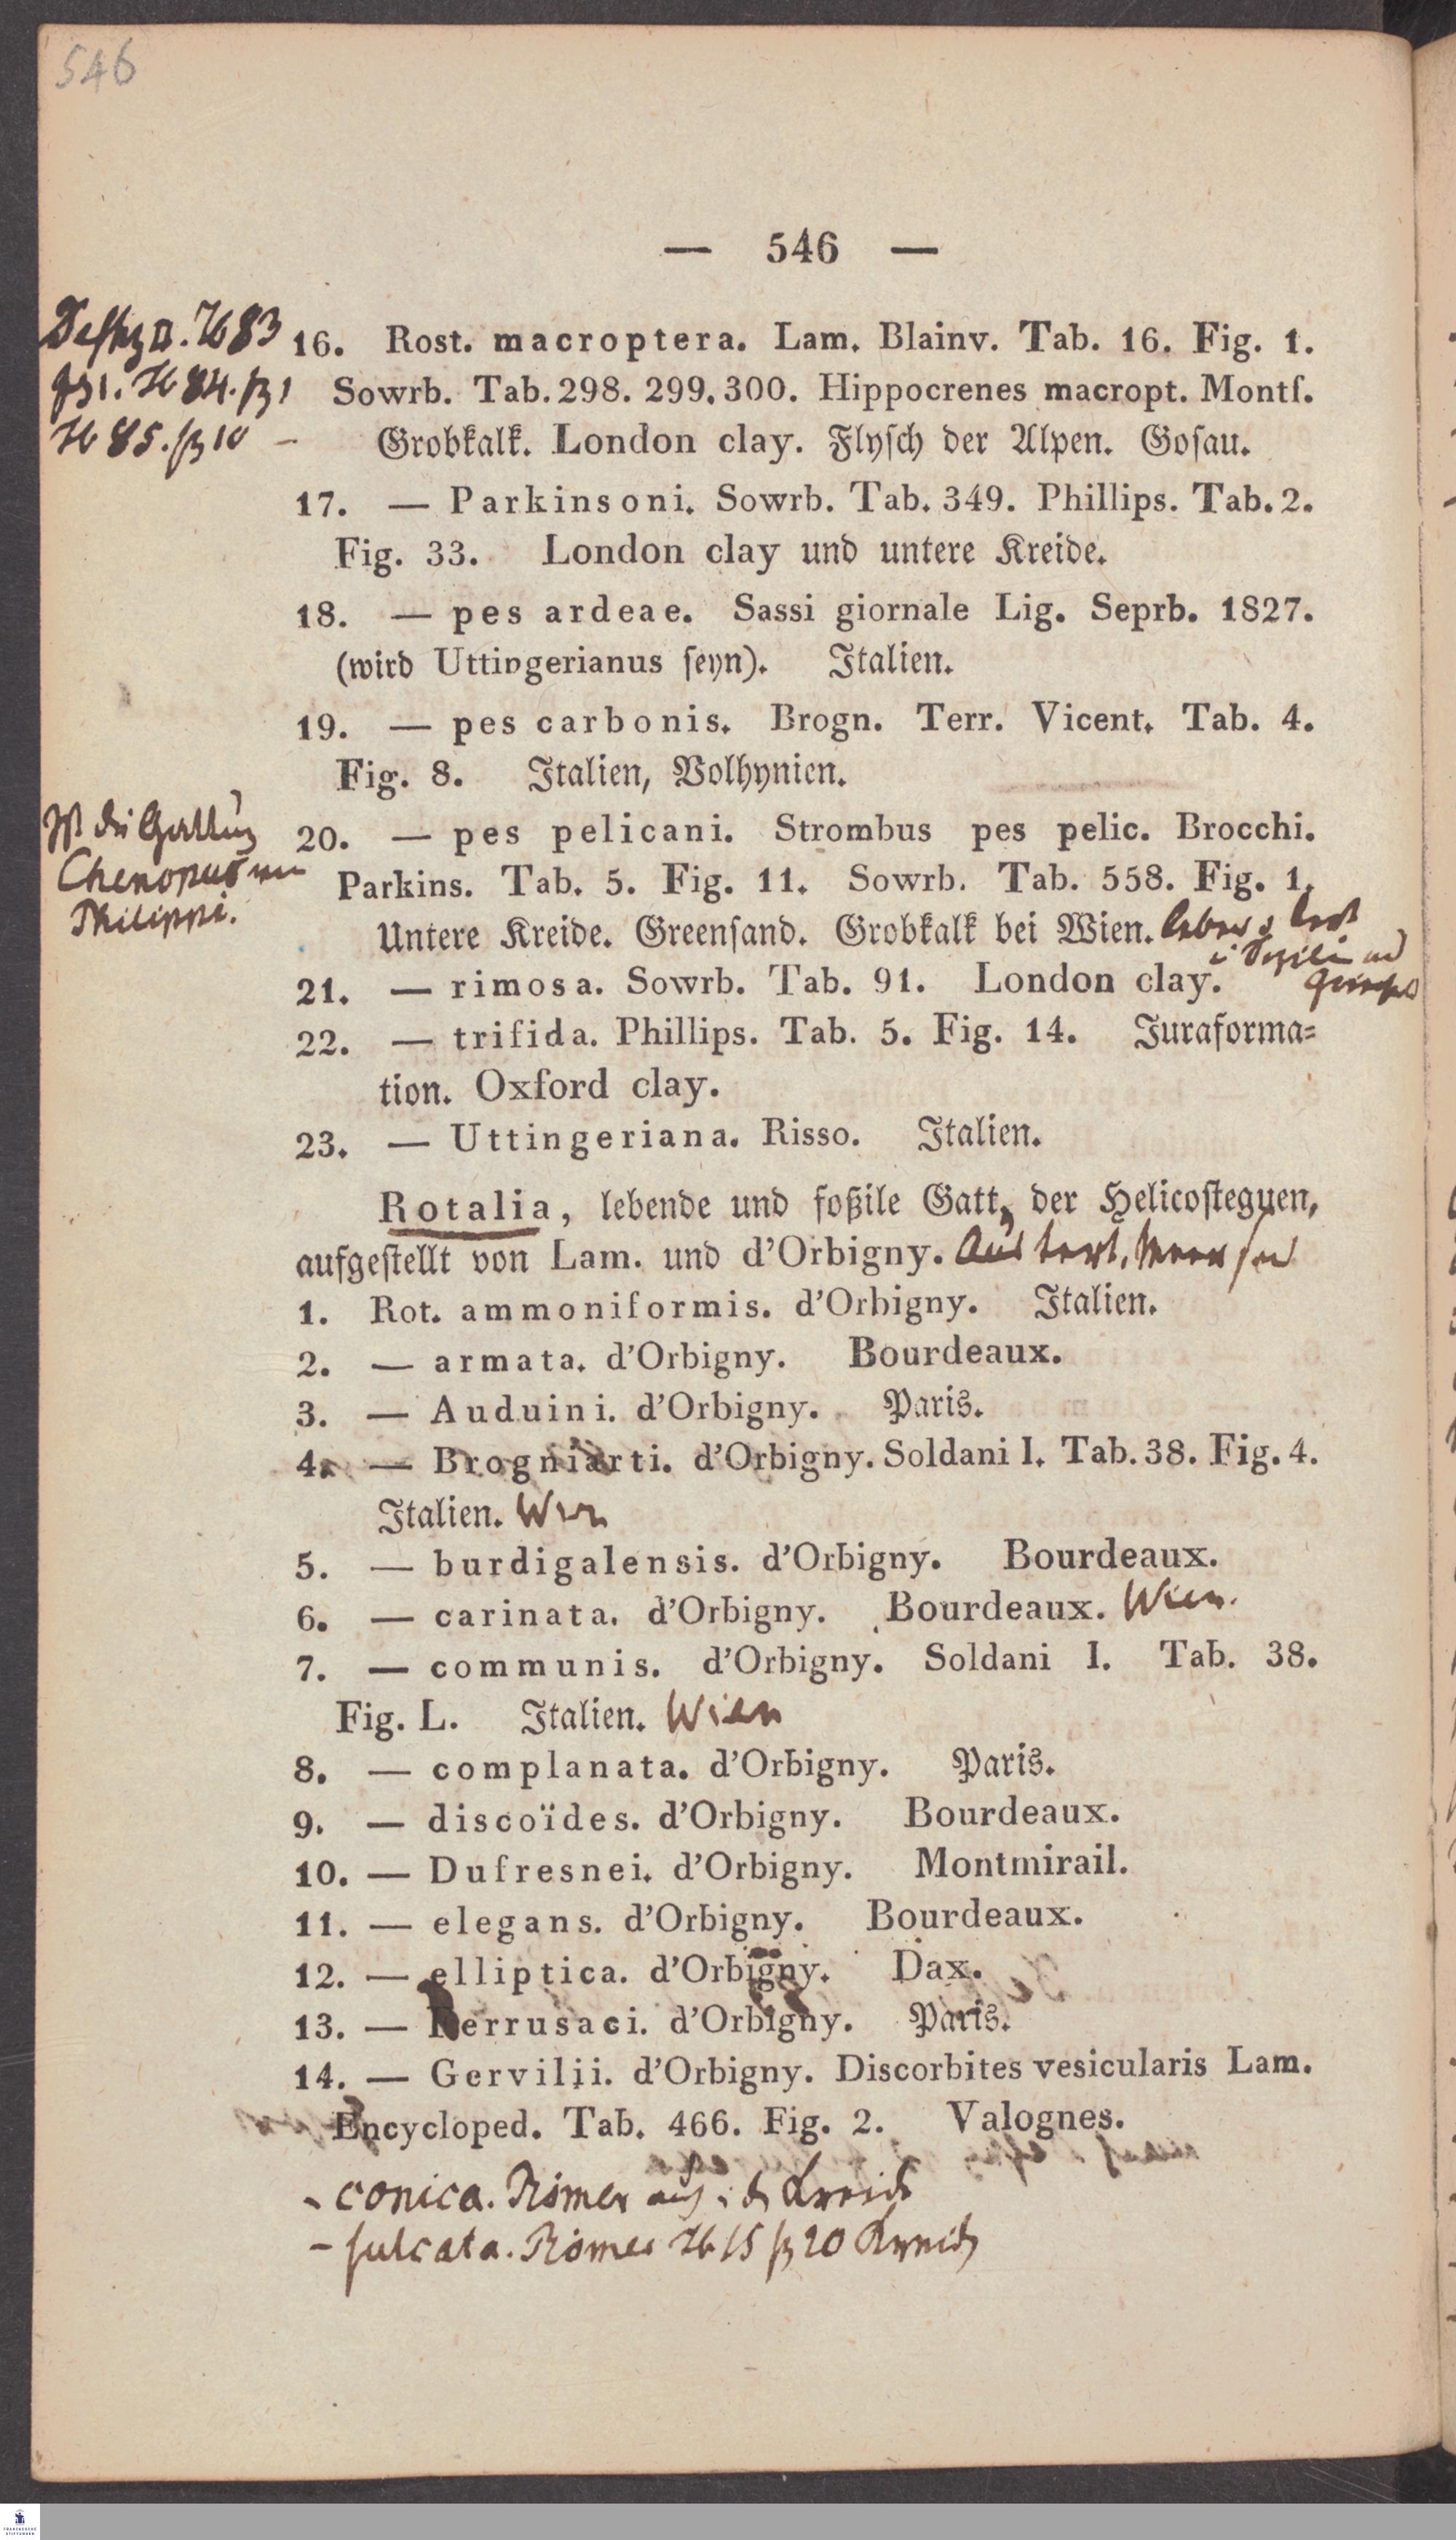 546
— 546 —
16. Rost. macroptera. Lam. Blainv. Tab. 16. Fig. 1.
Sowrb. Tab. 298. 299. 300. Hippocrenes macropt. Montf.
Grobkalk. London clay. Flysch der Alpen. Gosau.
17. — Parkinsoni. Sowrb. Tab. 349. Phillips. Tab. 2.
Fig. 33. London clay und untere Kreide.
18. — pes ardeae. Sassi giornale Lig. Seprb. 1827.
(wird Uttingerianus seyn). Italien.
19. — pes carbonis. Brogn. Terr. Vicent. Tab. 4.
Fig. 8. Italien, Volhynien.
Ist die Gattung
Chenopus
Philippi.
20. — pes pelicani. Strombus pes pelic. Brocchi.
Parkins. Tab. 5. Fig. 11. Sowrb. Tab. 558. Fig. 1.
Untere Kreide. Greensand. Grobkalk bei Wien.
21. — rimosa. Sowrb. Tab. 91. London clay.
22. — trifida. Phillips. Tab. 5. Fig. 14. Juraforma-
tion. Oxford clay.
23. — Uttingeriana. Risso. Italien.
Rotalia, lebende und foßile Gatt. der Helicosteguen,
aufgestellt von Lam. und d'Orbigny. Aus
1. Rot. ammoniformis. d'Orbigny. Italien.
2. — armata. d'Orbigny. Bourdeaux.
3. — Auduini. d'Orbigny. Paris.
4. — Brogniarti. d'Orbigny. Soldani I. Tab. 38. Fig. 4.
Italien. Wien
5. — burdigalensis. d'Orbigny. Bourdeaux.
6. — carinata. d'Orbigny. Bourdeaux. Wien.
7. — communis. d'Orbigny. Soldani I. Tab. 38.
Fig. L. Italien. Wien
8. — complanata. d'Orbigny. Paris.
9. — discoïdes. d'Orbigny. Bourdeaux.
10. — Dufresnei. d'Orbigny. Montmirail.
11. — elegans. d'Orbigny. Bourdeaux.
12. — elliptica. d'Orbigny. Dax.
13. — Ferrusaci. d'Orbigny. Paris.
14. — Gervilii. d'Orbigny. Discorbites vesicularis Lam.
Encycloped. Tab. 466. Fig. 2. Valognes.
– conica. Römer Kreide
– sulcata. Römer 15 20 Kreide